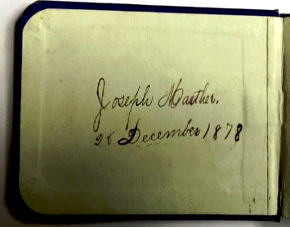 Joseph Marther.
28 December 1878